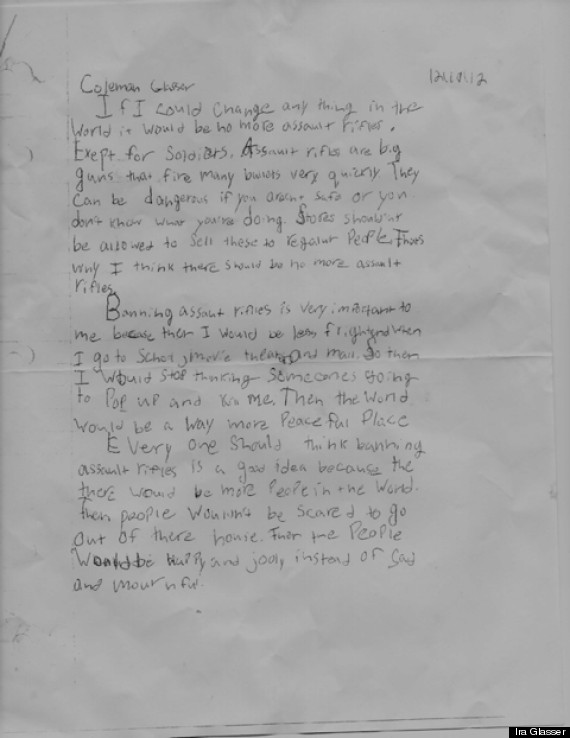 Coleman Glasser 12\10\12
If I could change any thing in the
world it would be no more assault rifles.
Exept for Soldiers. Assault rifles are big
guns that fire many bullots very quickly. They
can be dangerous if you arent safe or you
don't know what you're doing. Stores shouldnt
be allowed to sell these to regalur People. Thats
why I think there should be no more assalt
rifles.
Banning assalt rifles is very important to
me because then I would be less frightend when
I go to school, movie theaters and mall. So then
I would stop thinking Someones going
to Pop up and kill me. Then the World
would be a way more Peaceful Place
Every one Should think banning
assalt rifles is a good idea because the
there would be more People in the World.
then people Wouldn't be scared to go
out of there house. the People
Would be happy and jolly instead of Sad
and mournful.
Ira Glasser